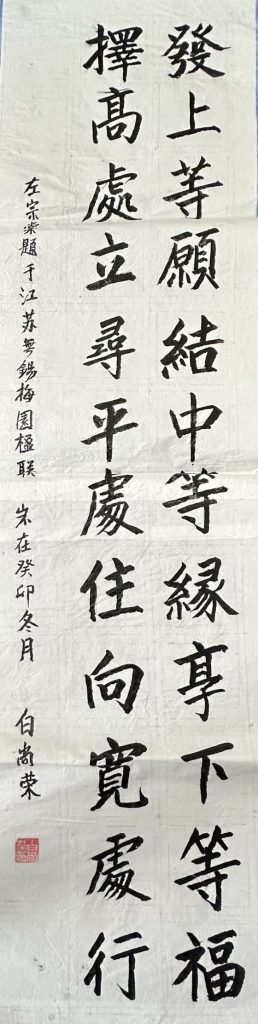 發上等願結中等緣享下等福
擇高處立尋平處住向寬處行
左宗棠題于江苏無錫梅園楹联 岁在癸卯冬月 白尚荣